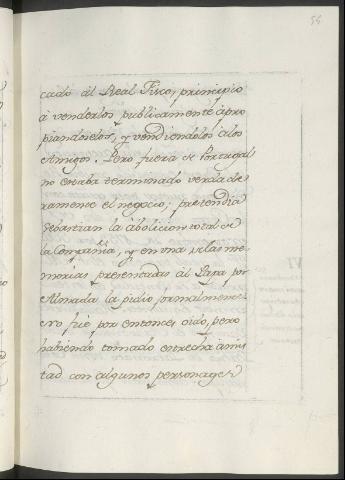 56
cado àl Real Fisco, principio
à venderlos publicamente àpro
piandoselos, y vendiendolos àlos
Amigos. Pero fuera de Portugal
no estaba terminado verdade
ramente el negocio; pretendia
Sebastian la àbolicion total de
la Compañia, y en una delas me
morias, presentadas àl Papa por
Almada la pidio formalmente
no fuè por entonces oido, pero
habiendo tomado estrecha amis
tad con algunos personages